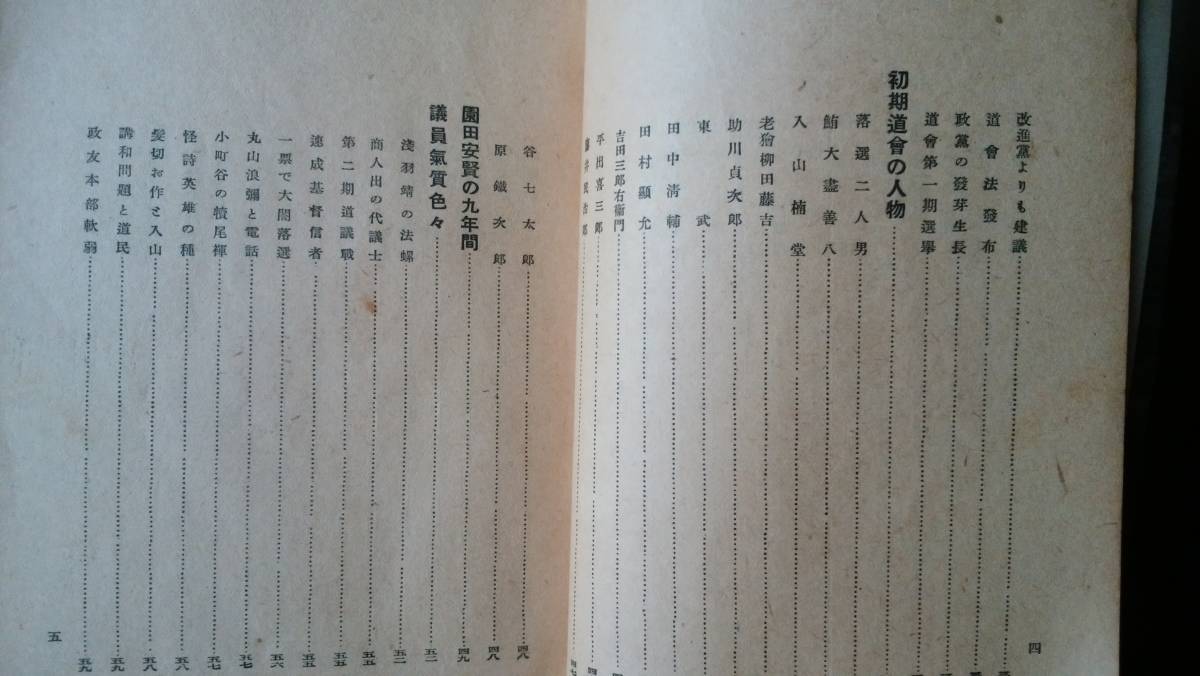 改進黨よりも建議
道會法發布
政黨の發芽生長
道會第一期選擧
初期道會の人物
落選二人男
鮪大盡善八
入山楠堂
老獪柳田藤吉
助川貞次郎
東武
田中淸輔
田村顯允
吉田三郎右衞門
平出喜三郎
井民治郎
四
谷七太郎 四八
原鐵次郎 四八
園田安賢の九年間 四九
議員氣質色々 五二
淺羽靖の法螺 五二
商人出の代議士 五五
第二期道議戰 五五
速成基督信者 五五
一票で大閤落選 五六
丸山浪彌と電話 五七
小町谷の犢尾褌 五七
怪詩英雄の種 五八
髮切お作と入山 五八
講和問題と道民 五九
政友本部軟弱 五九
五